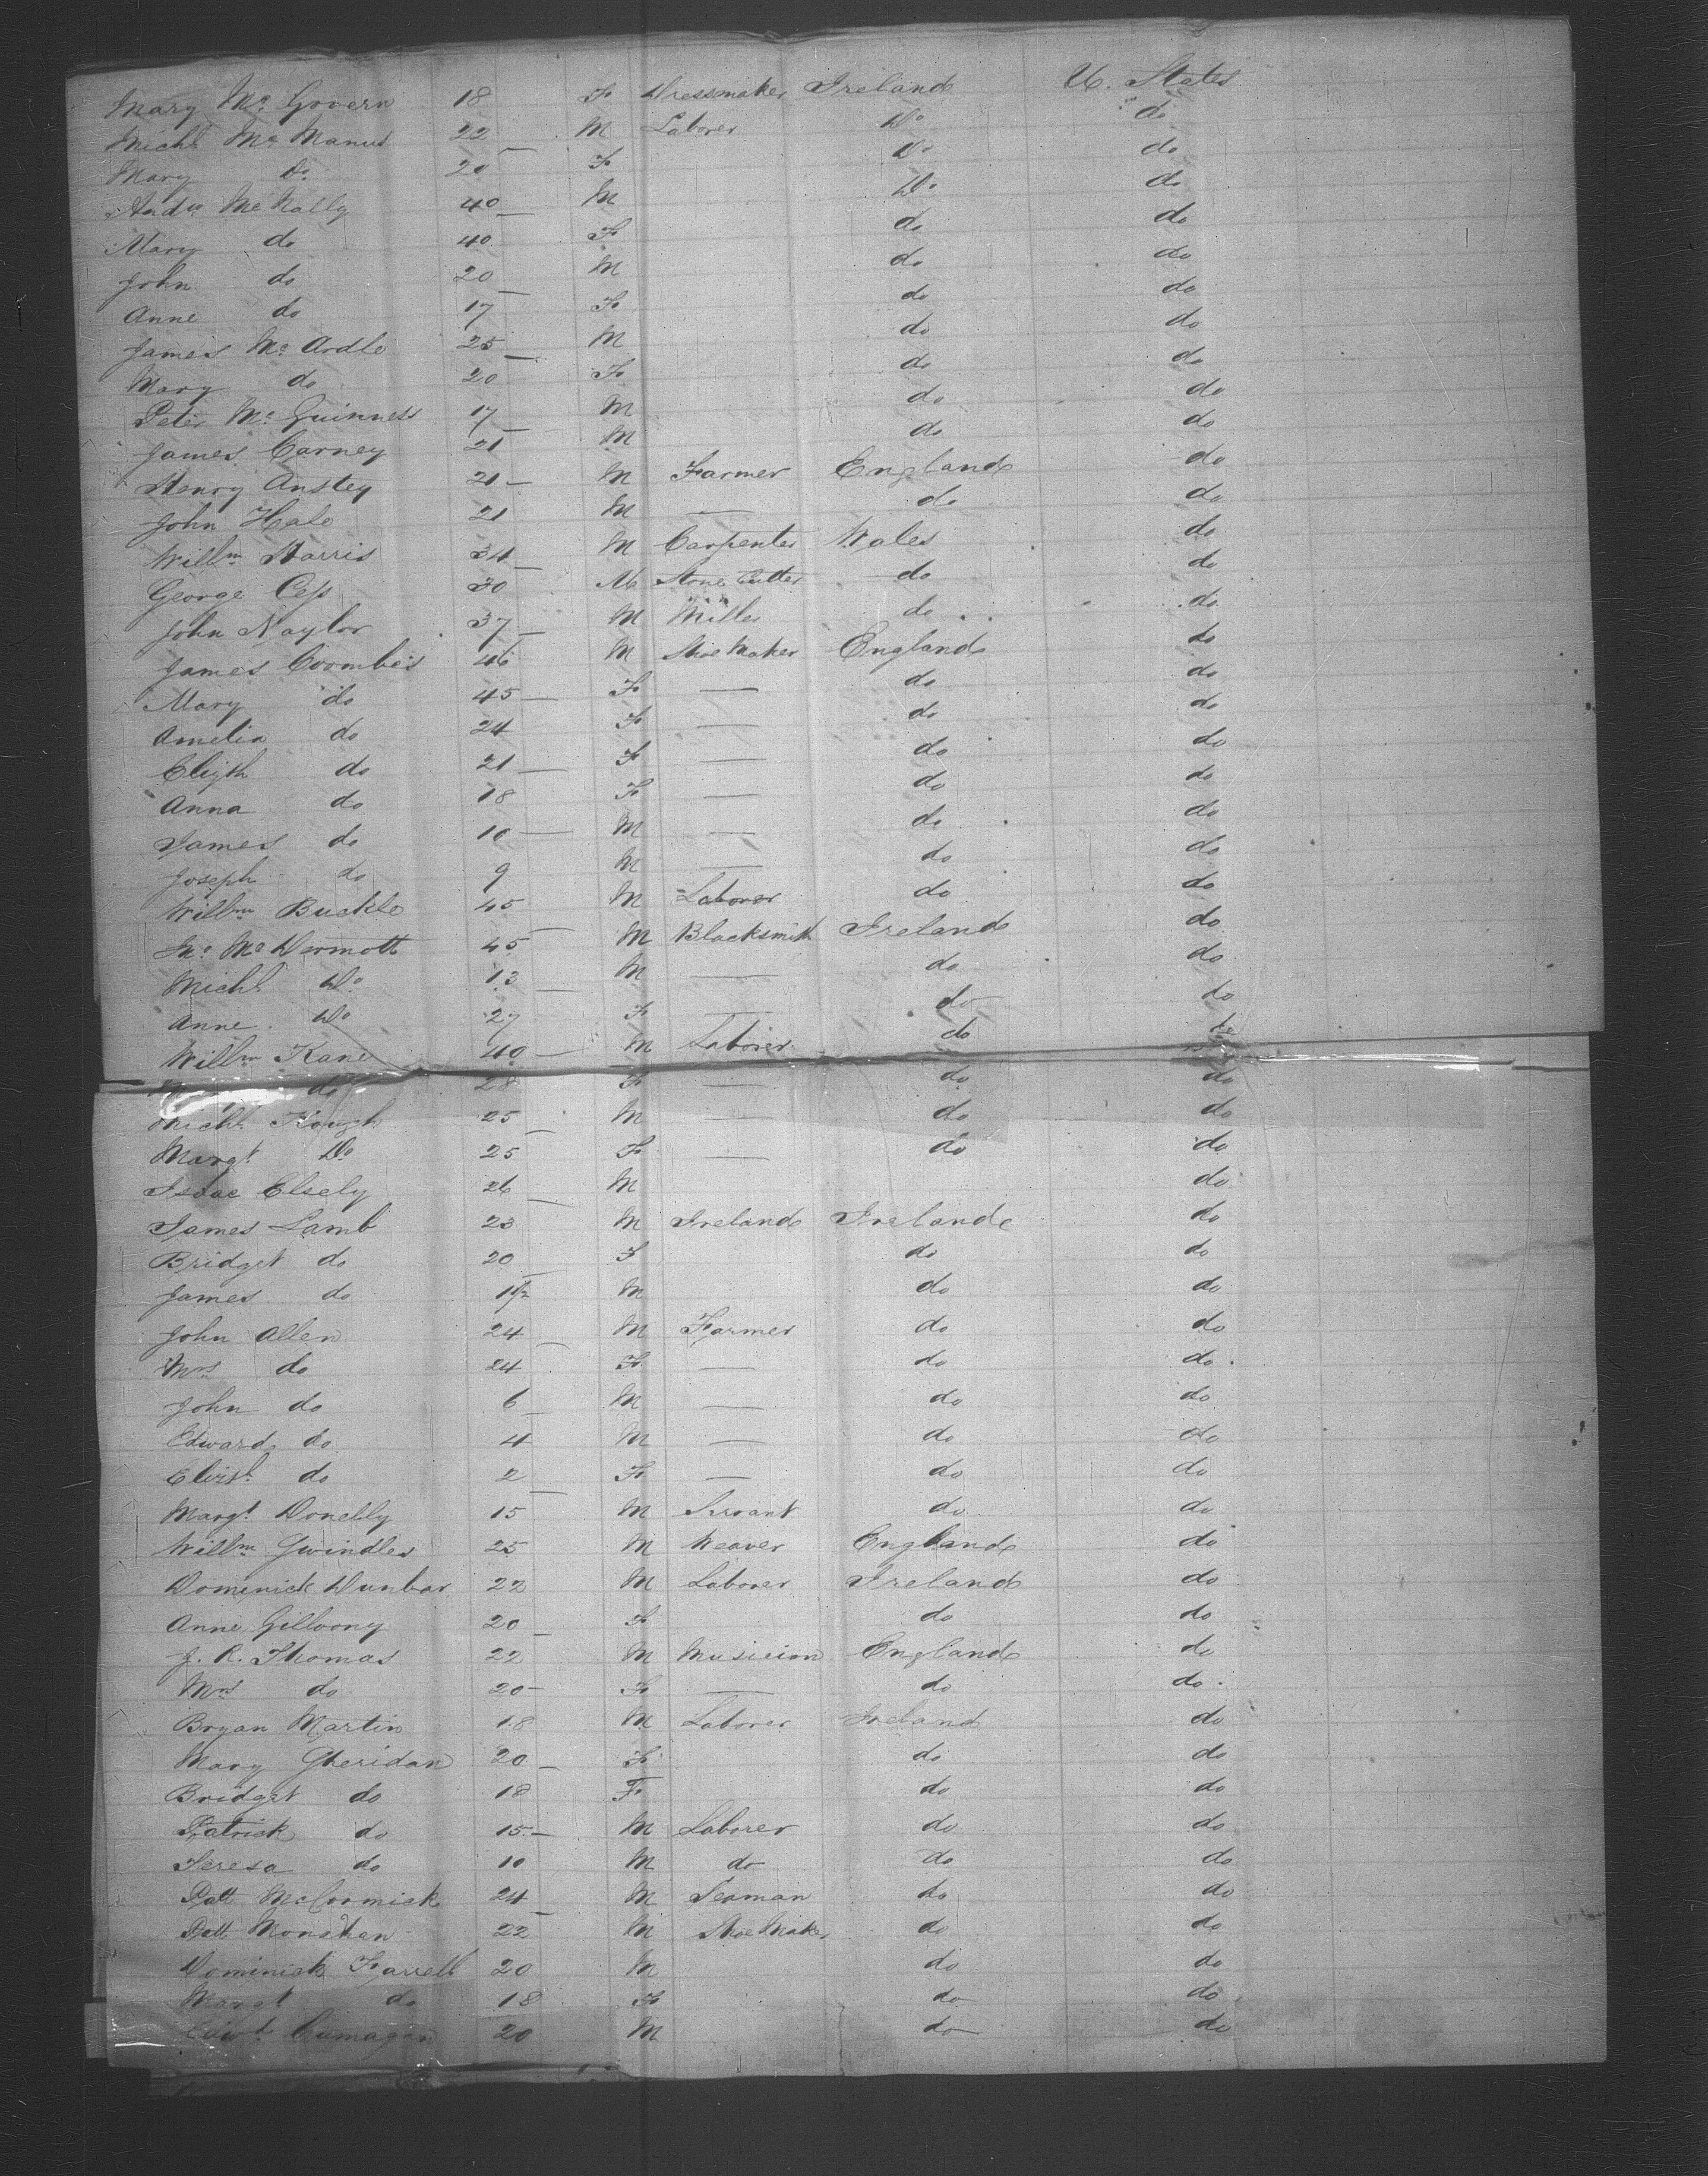 Mary Mc Govern 18 F Dressmaker Ireland U. States
Michl Mc Manus 22 M Laborer Do do
Mary Do 20 F Do do
Andw Mc Nally 40 M Do do
Mary do 40 F do do
John do 20 M do do
Anne do 17 F do do
James Mc Ardle 25 M do do
Mary do 20 F do do
Peter Mc Guinness 17 M do do
James Carney 21 M do do
Henry Anstey 21 M Farmer England do
John Hale 21 M — do do
Willm Harris 34 M Carpenter Wales do
George Cess 30 M Stone Cutter do do
John Naylor 37 M Miller do do
James Coombes 46 M Shoe Maker England do
Mary do 45 F — do do
Amelia do 24 F — do do
Elizth do 21 F — do do
Anna do 18 F — do do
James do 10 M — do do
Joseph do 9 M — do do
Willm Buckle 45 M Laborer do do
Mc Dermott 45 M Blacksmith Ireland do
Michl Do 13 M — do do
Anne Do 27 F — do do
Willm Kane 40 M Laborer do do
do 28 F — do do
Michl Kough 25 M — do do
Margt Do 25 F — do do
Isaac Elsely 26 M do
James Lamb 23 M Ireland Ireland do
Bridget do 20 F do do
James do 1 1/2 M do do
John Allen 24 M Farmer do do
Mrs do 24 F — do do
John do 6 M — do do
Edward do 4 M — do do
Elizth do 2 F — do do
Margt Donelly 15 M Servant do do
Willm Gwindles 25 M Weaver England do
Dominick Dunbar 22 M Laborer Ireland do
Anne Gilloony 20 F do do
J. R. Thomas 22 M Musician England do
Mrs do 20 F — do do
Bryan Martin 18 M Laborer Ireland do
Mary Sheridan 20 F do do
Bridget do 18 F do do
Patrick do 15 M Laborer do do
Teresa do 10 M do do do
Patt McCormick 24 M Seaman do do
Patt Monahan 22 M Shoe Maker do do
Dominick Farrell 20 M do do
Margt do 18 F do do
20 M do do